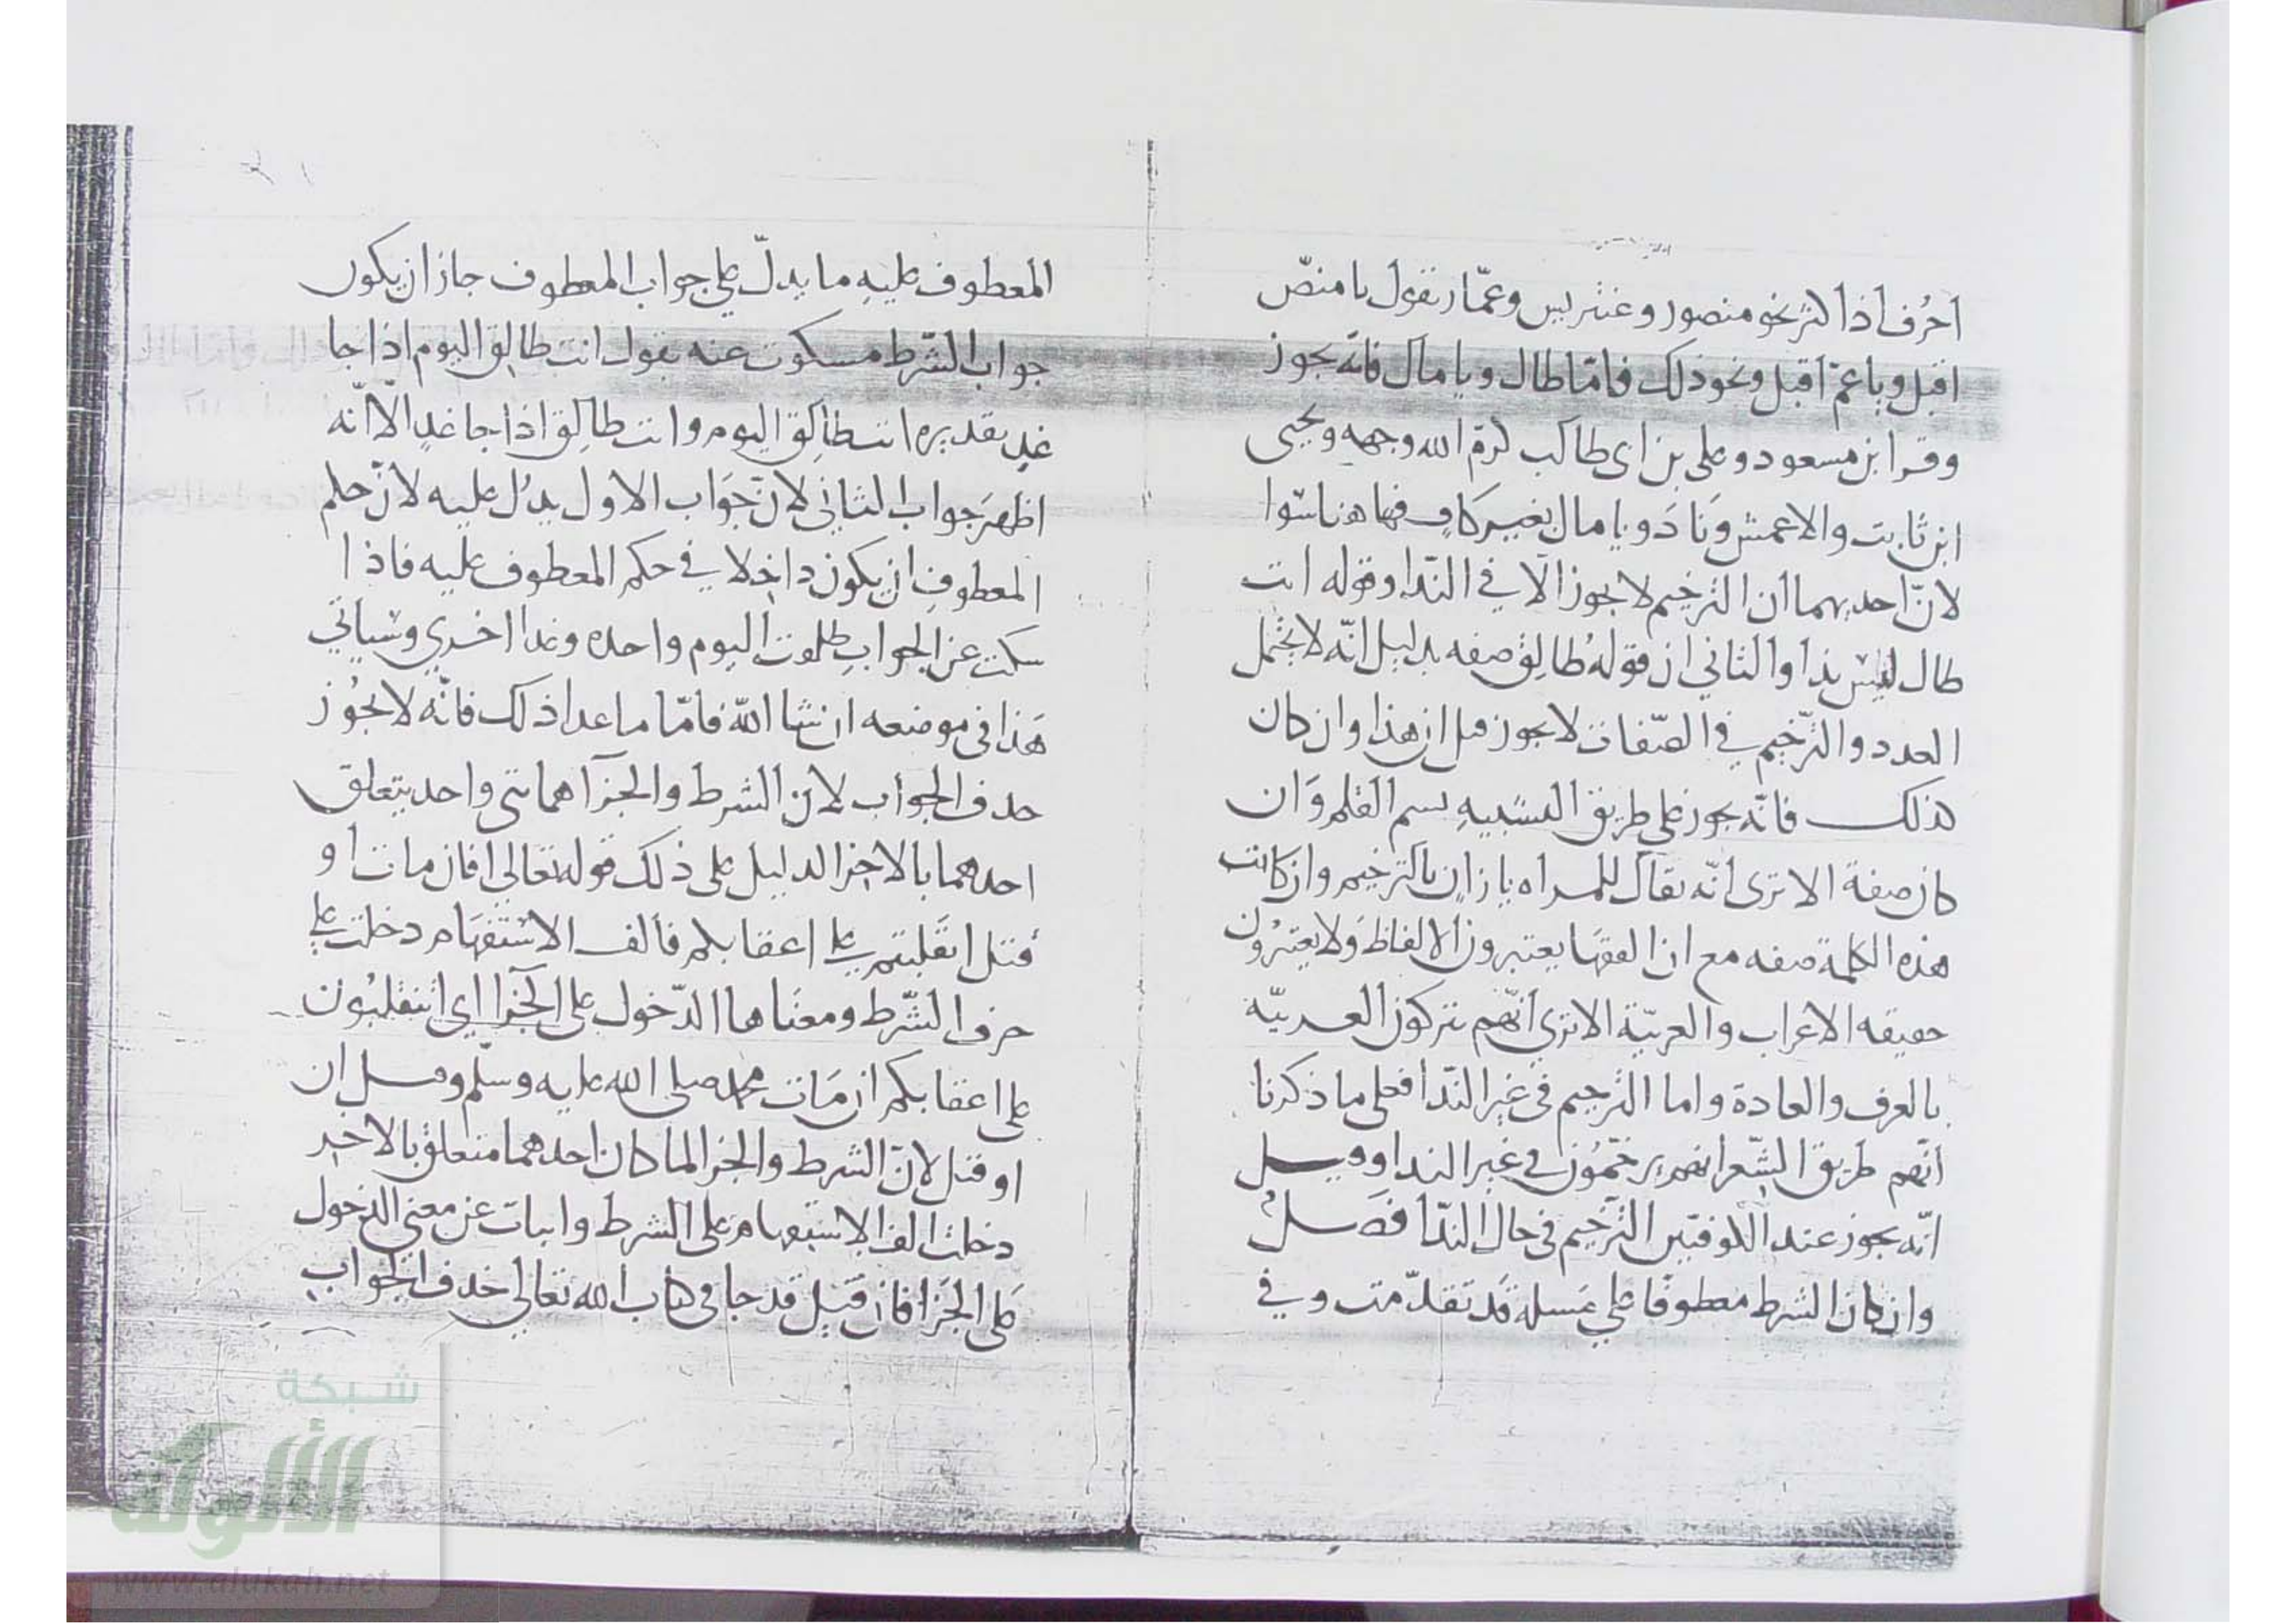 احرف اذا كثر نحو منصور وعنتريس وعمّار تقول يا منصّ
اقبل ويا عمّ اقبل ونحو ذلك فامّا طال ويا مال فانّه يجوز
وقرا ابن مسعود وعلى بن ابى طالب كرم الله وجهه ويحيى
ابن ثابت والاعمش ونادوا يا مال بغير كاف فهاهنا سوا
لانّ احديهما ان الترخيم لا يجوز الّا في النّدا وقوله انت
طال ليس بندا والثاني ان قوله طالق صفه بدليل انّه لا يحتمل
العدد والترّخيم في الصّفات لا يجوز قيل ان هذا وان كان
كذلك فانّه يجوز على طريق التشبيه بسم القلم وان
كان صفة الا ترى انّه يقال للمراه يا زان بالترخيم وان كانت
هذه الكلمة صفه مع ان الفقها يعتبرون الالفاظ ولا يعتبرون
حقيقه الاعراب والعربيّة الا ترى انّهم يتركون العربيّة
بالعرف والعادة واما الترخيم فى غير النّدا فعلى ما ذكرنا
انّهم طريق الشّعر انهم يرخّمون في غير الندا وقيل
انّه يجوز عند الكوفيّين الترّخيم فى حال النّدا فصل
وان كان الشرط معطوفًا على مسله قد تقدّمت وفي
المعطوف عليه ما يدلّ على جواب المعطوف جاز ان يكون
جواب الشّرط مسكوت عنه يقول انت طالق اليوم اذا جا
غد بقديره انت طالق اليوم وانت طالق اذا جا غد الّا انّه
اظهر جواب الثاني لانّ جواب الاول يدل عليه لانّ حكم
المعطوف ان يكون داخلا في حكم المعطوف عليه فاذا
سكت عن الجواب طلقت اليوم واحده وغدا اخرى وسياتي
هذا فى موضعه ان شا الله فامّا ما عدا ذلك فانّه لا يجوز
حدف الجواب لانّ الشرط والجزآ هما شى واحد يتعلق
احدهما بالاخر الدليل على ذلك قوله تعالى افان مات او
قتل انقلبتم على اعقابكم فالف الاستفهام دخلت على
حرف الشّرط ومعناها الدّخول على الجزا اي اتنقلبون
على اعقابكم ان مات محمد صلى الله عليه وسلّم وقيل ان
او قتل لانّ الشرط والجزا لما كان احدهما متعلق بالاخر
دخلت الف الاستفهام على الشرط وابانت عن معنى الدخول
على الجزا فان قيل قد جا فى كتاب الله تعالى حذف الجواب
شبكة
الألوكة
www.alukah.net